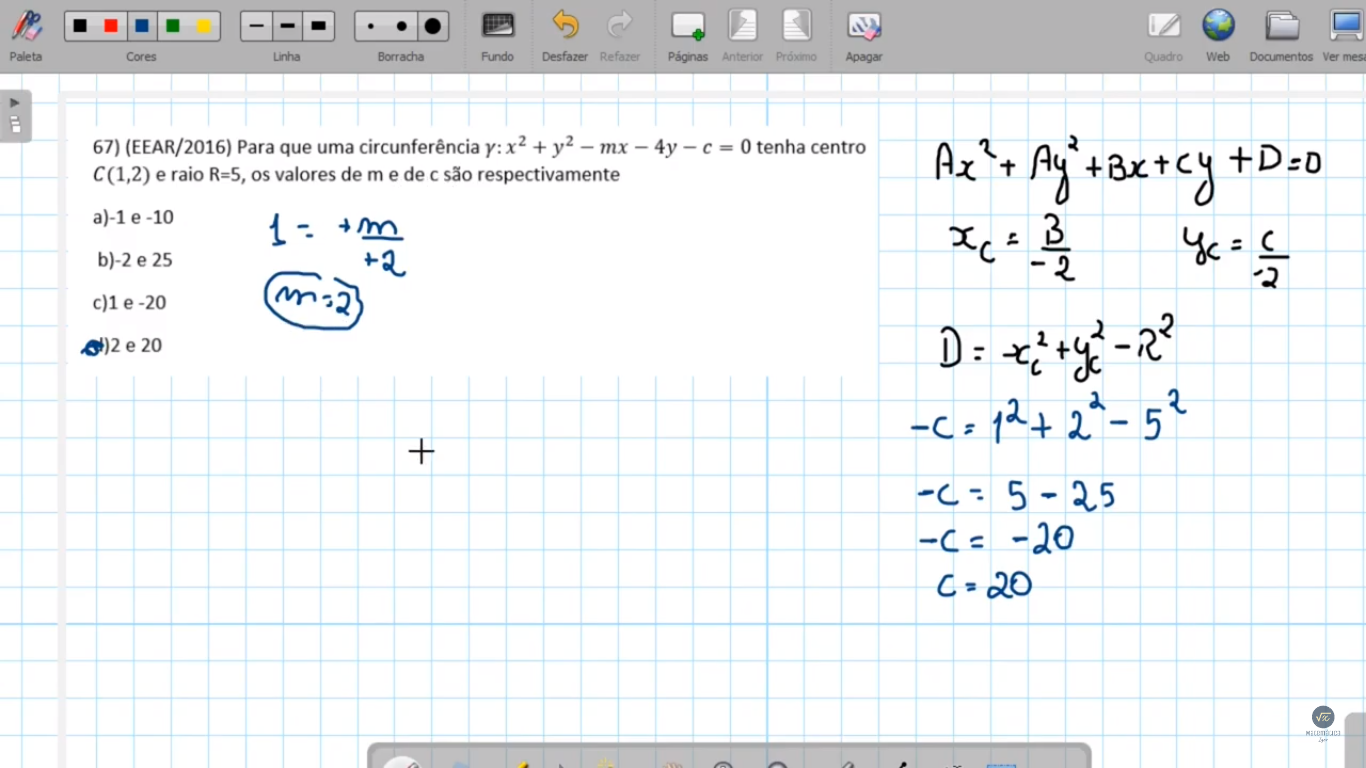 Paleta Cores Linha Borracha Fundo Desfazer Refazer Páginas Anterior Próximo Apagar Quadro Web Documentos Ver mesa
67) (EEAR/2016) Para que uma circunferência γ: x² + y² − mx − 4y − c = 0 tenha centro
C(1,2) e raio R=5, os valores de m e de c são respectivamente
a)-1 e -10
b)-2 e 25
c)1 e -20
d)2 e 20
1 = +m/+2
m=2
Ax² + Ay² + Bx + Cy + D = 0
x_c = B/-2 y_c = C/-2
D = x_c² + y_c² - R²
-c = 1² + 2² - 5²
-c = 5 - 25
-c = -20
c = 20